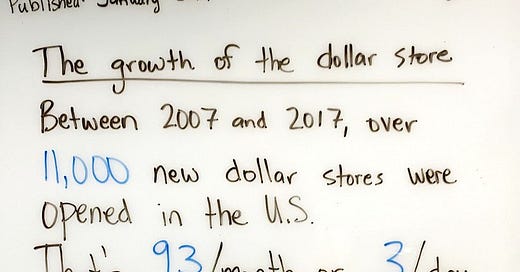 Published: January
The growth of the dollar store
Between 2007 and 2017, over
11,000 new dollar stores were
opened in the U.S.
That's 93/month or 3/day